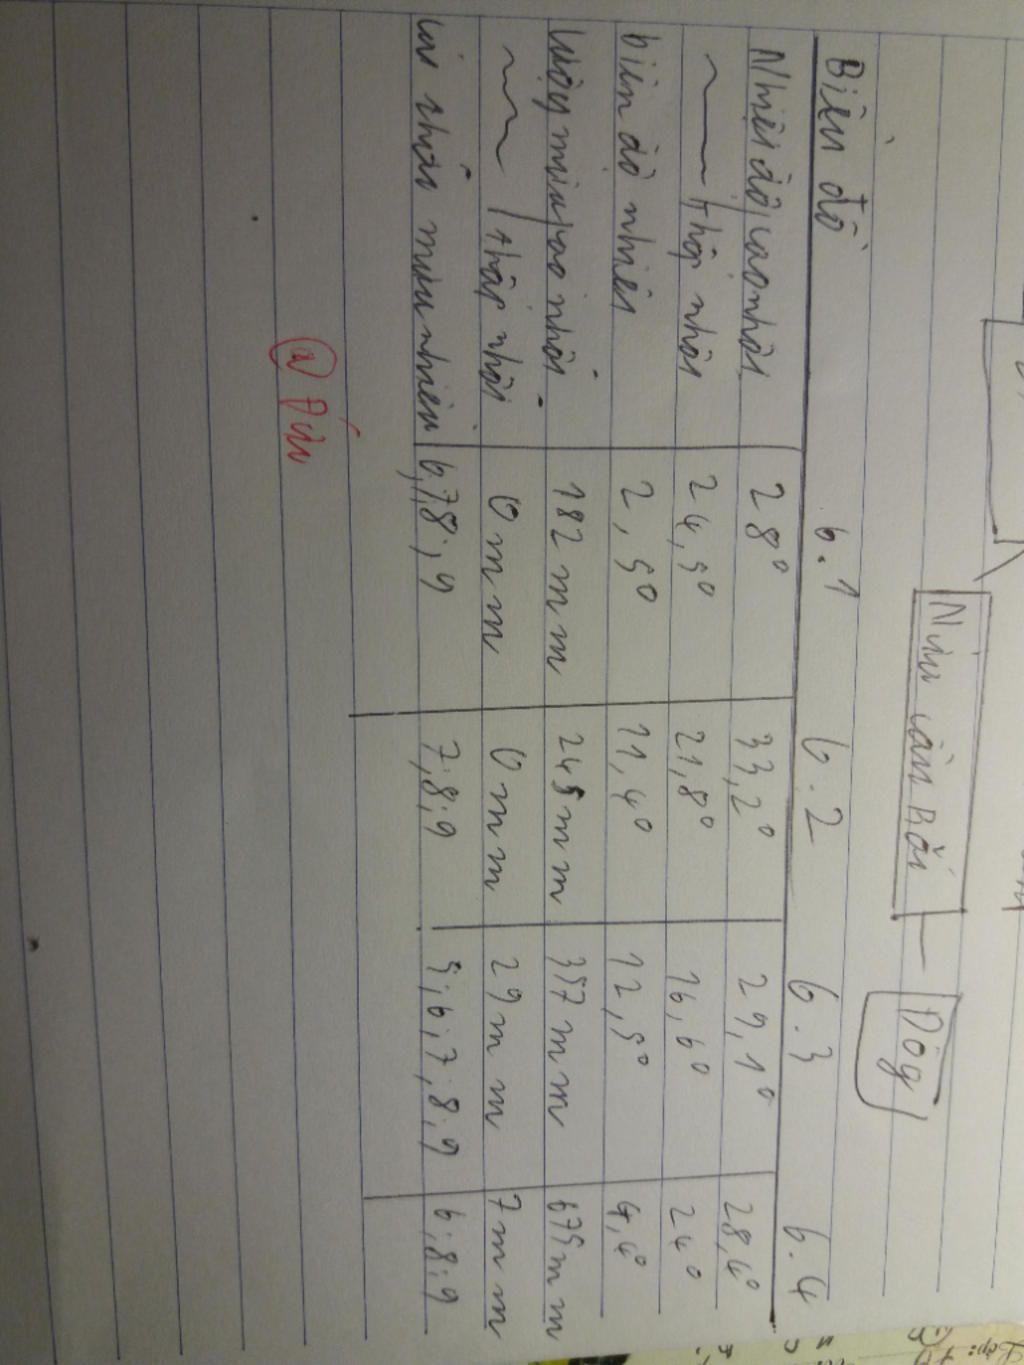 Núi cần Bối
Dôg
Biểu đồ 6.1 6.2 6.3 6.4
Nhiệt độ cao nhất 28° 33,2° 29,1° 28,4°
thấp nhất 24,5° 21,8° 16,6° 24°
biên độ nhiệt 2,5° 11,4° 12,5° 4,4°
lượng mưa cao nhất 182mm 245mm 357mm 675mm
thấp nhất 0mm 0mm 29mm 7mm
các tháng mưa nhiều 6,7,8,9 7,8,9 5,6,7,8,9 6,8,9